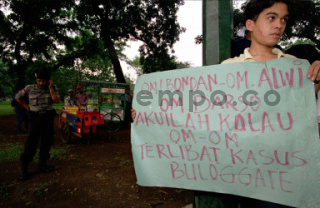 OM BONDAN-OM ALWI
OM DARSO
AKUILAH KALAU
OM-OM
TERLIBAT KASUS
BULOGGATE
tempo.co